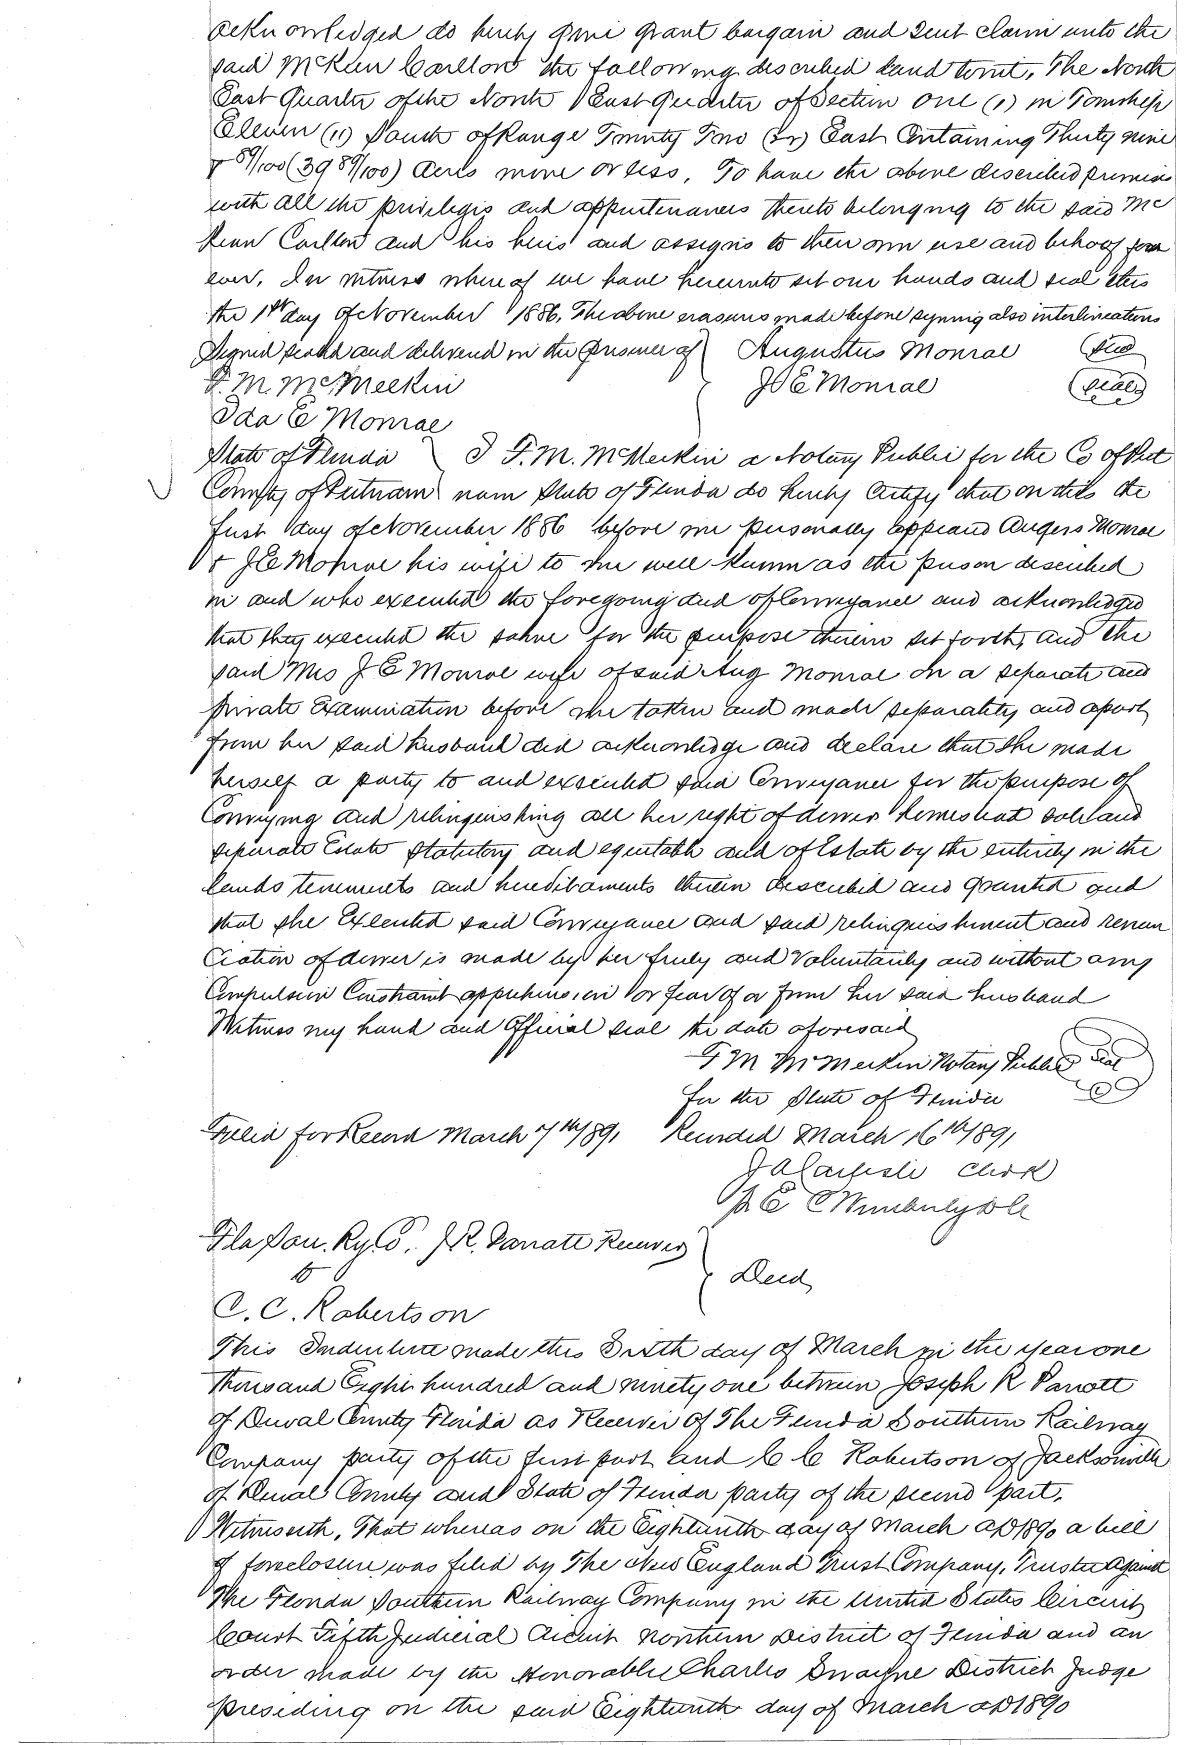 acknowledged do hereby give grant bargain and Quit claim unto the
said McKean Carlton the following described land towit. The North
East Quarter of the North East Quarter of Section One (1) in Township
Eleven (11) South of Range Twenty Two (22) East Containing Thirty nine
& 89/100 (39 89/100) acres more or less. To have the above described premises
with all the privileges and appurtenances thereto belonging to the said Mc
Kean Carlton and his heirs and assigns to their own use and behoof for
ever. In witness whereof we have hereunto set our hands and seal this
the 1st day of November 1886. The above erasures made before signing also interlineations
Signed sealed and delivered in the presence of Augustus Monroe Seal
F. M. McMeekin J E Monroe Seal
Ida E Monroe
State of Florida I F. M. McMeekin a Notary Public for the Co of Put
County of Putnam nam State of Florida do hereby Certify that on this the
first day of November 1886 before me personally appeard Monroe
& J E Monroe his wife to me well known as the person described
in and who executed the foregoing deed of Conveyance and acknowledged
that they executed the same for the purpose therein set forth, and the
said Mrs J E Monroe wife of said Aug Monroe on a separate and
private examination before me taken and made separately and apart
from her said husband did acknowledge and declare that She made
herself a party to and executed said Conveyance for the purpose of
Conveying and relinquishing all her right of dower homestead sole and
seperate Estate Statutory and equitable and of Estate by the entirety in the
lands tenements and hereditaments therein described and granted and
that she Executed said Conveyance and said relinquishment and renun
ciation of dower is made by her freely and voluntarily and without any
Compulsion Constraint apprehension or fear of or from her said husband
Witness my hand and official seal the date aforesaid
F M McMeekin Notary Public Seal
for the State of Florida
Filed for Record March 7th 1891 Recorded March 16th 1891
J A Carlisle Clerk
E C Wimberly D C
Fla Sou. Ry Co. J. R. Parrott Receiver
to Deed,
C. C. Robertson
This Indenture made this Sixth day of March in the year one
thousand Eight hundred and ninety one between Joseph R Parrott
of Duval County Florida as Receiver of The Florida Southern Railway
Company party of the first part and C C Robertson of Jacksonville
of Duval County and State of Florida party of the second part.
Witnesseth, That whereas on the Eighteenth day of March AD 1890 a bill
of foreclosure was filed by The New England Trust Company, Trustee against
The Florida Southern Railway Company in the United States Circuit
Court Fifth Judicial Circuit Northern District of Florida and an
order made by the Honorable Charles Swayne District Judge
presiding on the said Eighteenth day of March AD 1890